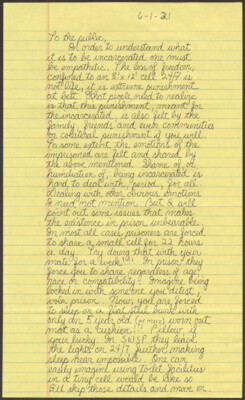 6-1-21
To the public,
In order to understand what
it is to be incarcerated one must
be empathetic. The loss of freedom,
confined to an 8' x 12' cell 24/7 is
not life, it is extreme punishment
at best. What people need to realize
is that this punishment, meant for
the incarcerated, is also felt by the
family, friends and even communities
or collateral punishment if you will.
To some extent the emotions of the
imprisoned are felt and shared by
the above mentioned. Shame of, or
humiliation of, being incarcerated is
hard to deal with, period, for all.
Dealing with other obvious emotions
I need not mention. But I will
point out some issues that makes
the existence in prison unbearable.
In most all cases prisoners are forced
to share a small cell for 22 hours
a day. Try doing that with your
mate for a week!!! In prison they
force you to share regardless of age,
race or compatibility. Imagine being
locked in with someone you detest,
even poison. Now, you are forced
to sleep on a flat steel bunk with
only a 5 year old (or more) worn out
mat as a cushion!!! Pillow if
your lucky. In SWSP they leave
the lights on 24/7 further making
sleep near impossible. One can
easily imagine using toilet facilities
in a tiny cell would be like so
I'll skip those details and move on.